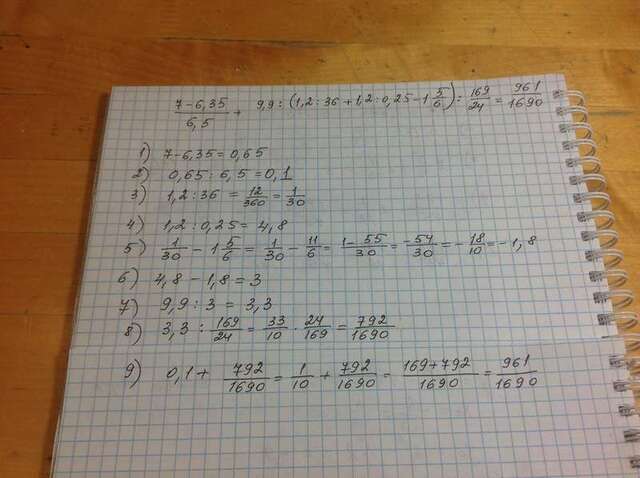 (7-6,35)/6,5 + 9,9 : (1,2 : 36 + 1,2 : 0,25 - 1 5/6) : 169/24 = 961/1690
1) 7-6,35 = 0,65
2) 0,65 : 6,5 = 0,1
3) 1,2 : 36 = 12/360 = 1/30
4) 1,2 : 0,25 = 4,8
5) 1/30 - 1 5/6 = 1/30 - 11/6 = (1-55)/30 = -54/30 = -18/10 = -1,8
6) 4,8 - 1,8 = 3
7) 9,9 : 3 = 3,3
8) 3,3 : 169/24 = 33/10 · 24/169 = 792/1690
9) 0,1 + 792/1690 = 1/10 + 792/1690 = (169+792)/1690 = 961/1690